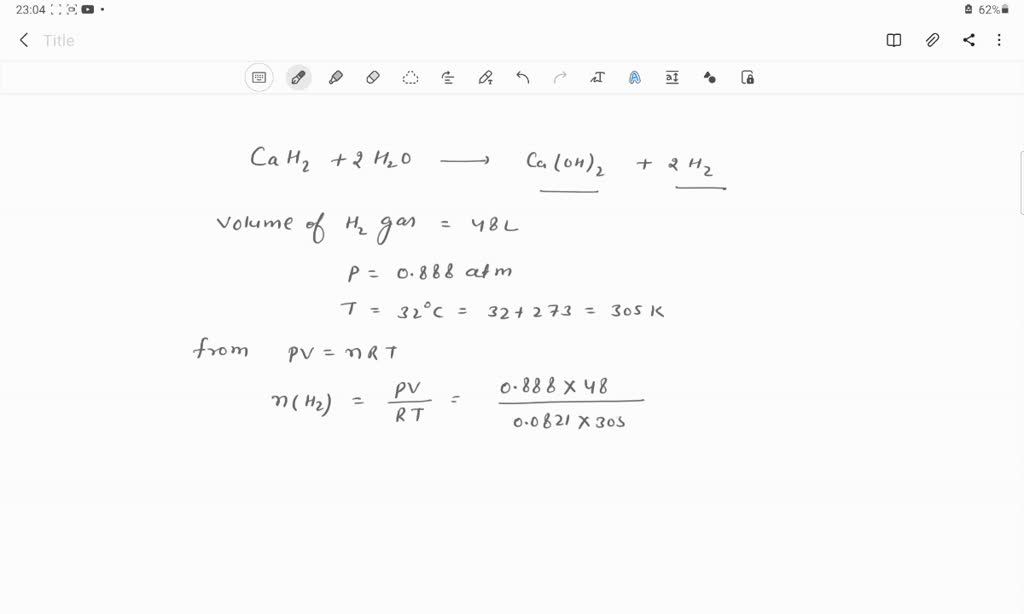 23:04 62%
Title
CaH₂ + 2 H₂O ⟶ Ca(OH)₂ + 2 H₂
Volume of H₂ gas = 48L
P = 0.888 atm
T = 32°C = 32 + 273 = 305 K
from PV = nRT
n(H₂) = PV/RT = 0.888 × 48 / 0.0821 × 305